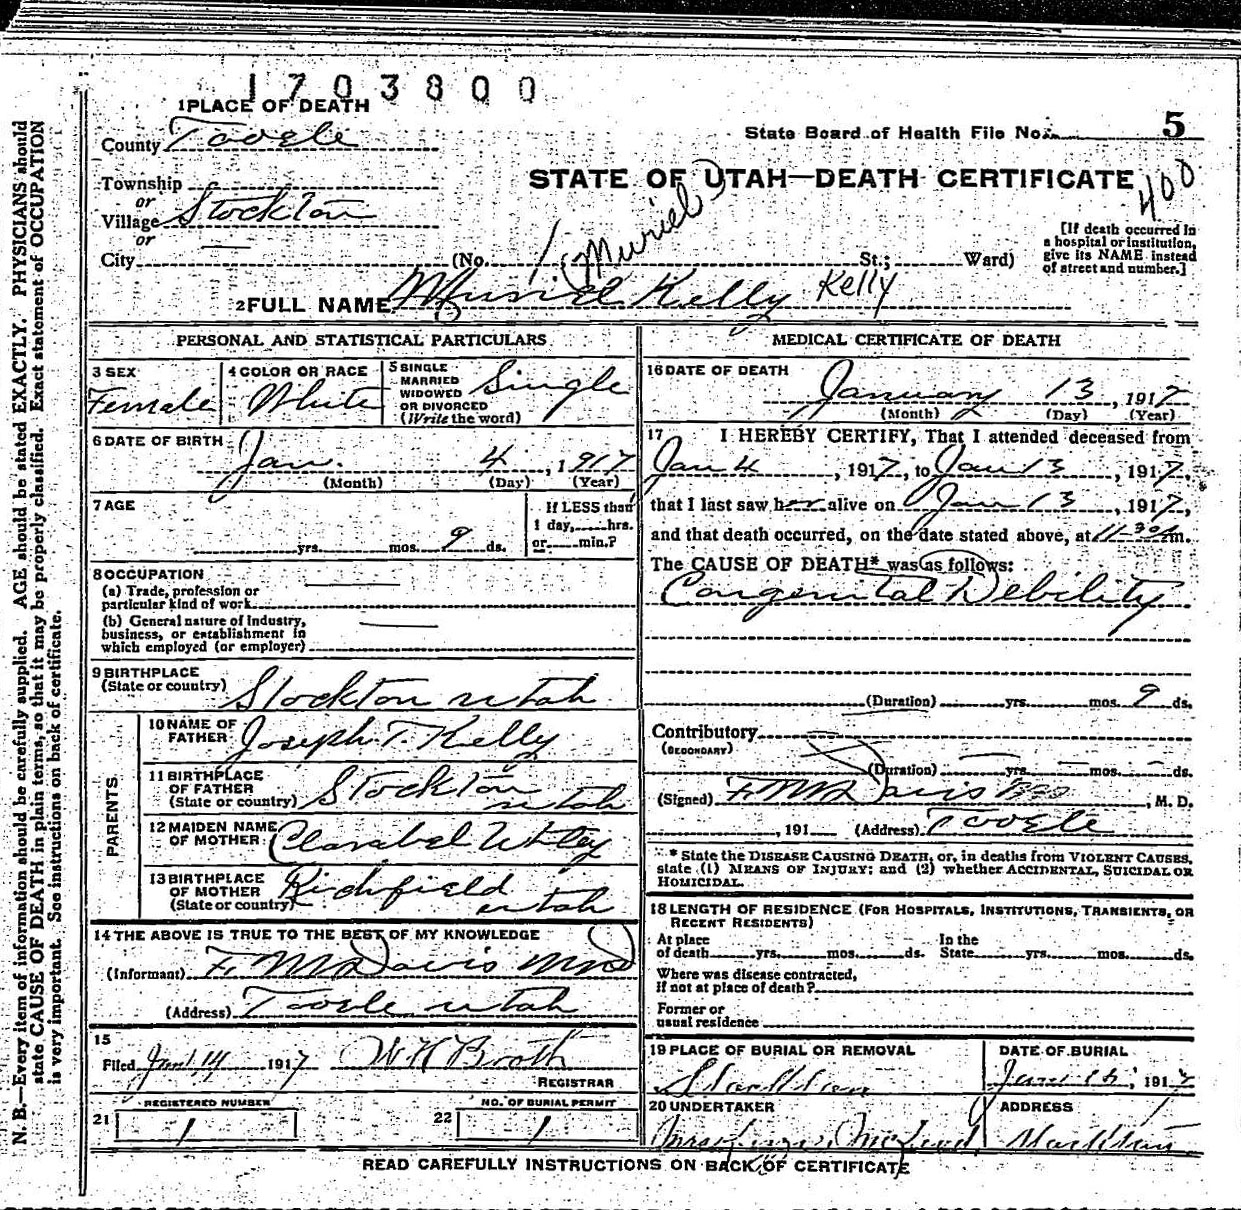 1703800
1 PLACE OF DEATH
County Tooele
State Board of Health File No. 5
Township
or
Village Stockton
or
City
STATE OF UTAH—DEATH CERTIFICATE
400
(No. St.; Ward)
[If death occurred in
a hospital or institution,
give its NAME instead
of street and number.]
(Muriel)
2 FULL NAME Muriel Kelly Kelly
PERSONAL AND STATISTICAL PARTICULARS
3 SEX
Female
4 COLOR OR RACE
White
5 SINGLE
MARRIED
WIDOWED
OR DIVORCED
(Write the word)
Single
6 DATE OF BIRTH
Jan. 4, 1917
(Month) (Day) (Year)
7 AGE
yrs. mos. 9 ds.
If LESS than
1 day, hrs.
or min.?
8 OCCUPATION
(a) Trade, profession or
particular kind of work
(b) General nature of Industry,
business, or establishment in
which employed (or employer)
9 BIRTHPLACE
(State or country)
Stockton Utah
PARENTS
10 NAME OF
FATHER Joseph T. Kelly
11 BIRTHPLACE
OF FATHER
(State or country) Stockton
Utah
12 MAIDEN NAME
OF MOTHER Clarabel Utley
13 BIRTHPLACE
OF MOTHER
(State or country) Richfield
Utah
14 THE ABOVE IS TRUE TO THE BEST OF MY KNOWLEDGE
(Informant) F. M. Davis MD
(Address) Tooele Utah
15
Filed Jan 14 1917
REGISTRAR
REGISTERED NUMBER
21 1
NO. OF BURIAL PERMIT
22 1
MEDICAL CERTIFICATE OF DEATH
16 DATE OF DEATH
January 13, 1917
(Month) (Day) (Year)
17 I HEREBY CERTIFY, That I attended deceased from
Jan 4, 1917, to Jan 13, 1917,
that I last saw her alive on Jan 13, 1917,
and that death occurred, on the date stated above, at 11-30 m.
The CAUSE OF DEATH* was as follows:
Congenital Debility
(Duration) yrs. mos. 9 ds.
Contributory
(SECONDARY)
(Duration) yrs. mos. ds.
(Signed) F. M. Davis, M. D.
, 191 (Address) Tooele
* State the DISEASE CAUSING DEATH, or, in deaths from VIOLENT CAUSES,
state (1) MEANS OF INJURY; and (2) whether ACCIDENTAL, SUICIDAL OR
HOMICIDAL.
18 LENGTH OF RESIDENCE (FOR HOSPITALS, INSTITUTIONS, TRANSIENTS, OR
RECENT RESIDENTS)
At place
of death yrs. mos. ds.
In the
State yrs. mos. ds.
Where was disease contracted,
If not at place of death?
Former or
usual residence
19 PLACE OF BURIAL OR REMOVAL
Stockton
DATE OF BURIAL
, 1917
20 UNDERTAKER
ADDRESS
Stockton
READ CAREFULLY INSTRUCTIONS ON BACK OF CERTIFICATE
N. B.—Every item of information should be carefully supplied. AGE should be stated EXACTLY. PHYSICIANS should
state CAUSE OF DEATH in plain terms, so that it may be properly classified. Exact statement of OCCUPATION
is very important. See instructions on back of certificate.